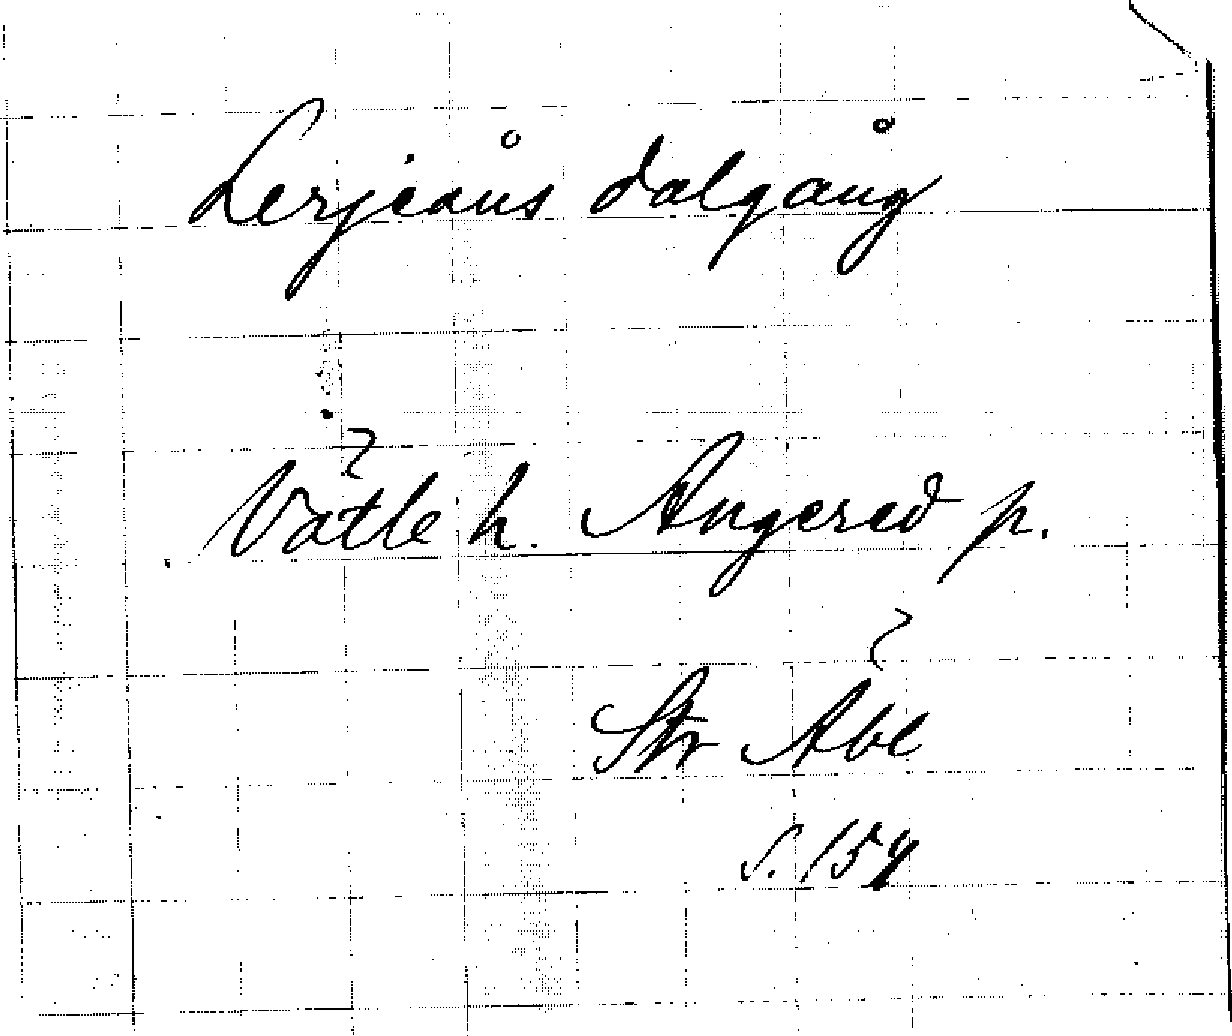 Lerjeåns dalgång
Vätle h. Angered p.
Str Äbl
s. 159